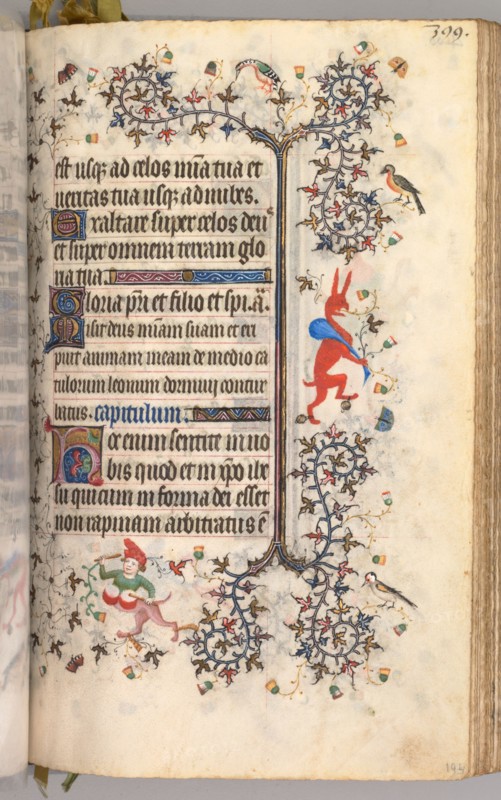 399.
est usq; ad celos mia tua et
ueritas tua usq; ad nubes.
Exaltare super celos deus
et super omnem terram glo
ria tua.
Gloria pri et filio et spi. a.
Misit deus miam suam et eri
puit animam meam de medio ca
tulorum leonum dormiui contur
batus. capitulum.
Hoc enim sentite in uo
bis quod et in xpo ihe
su qui cum in forma dei esset
non rapinam arbitratus e
193